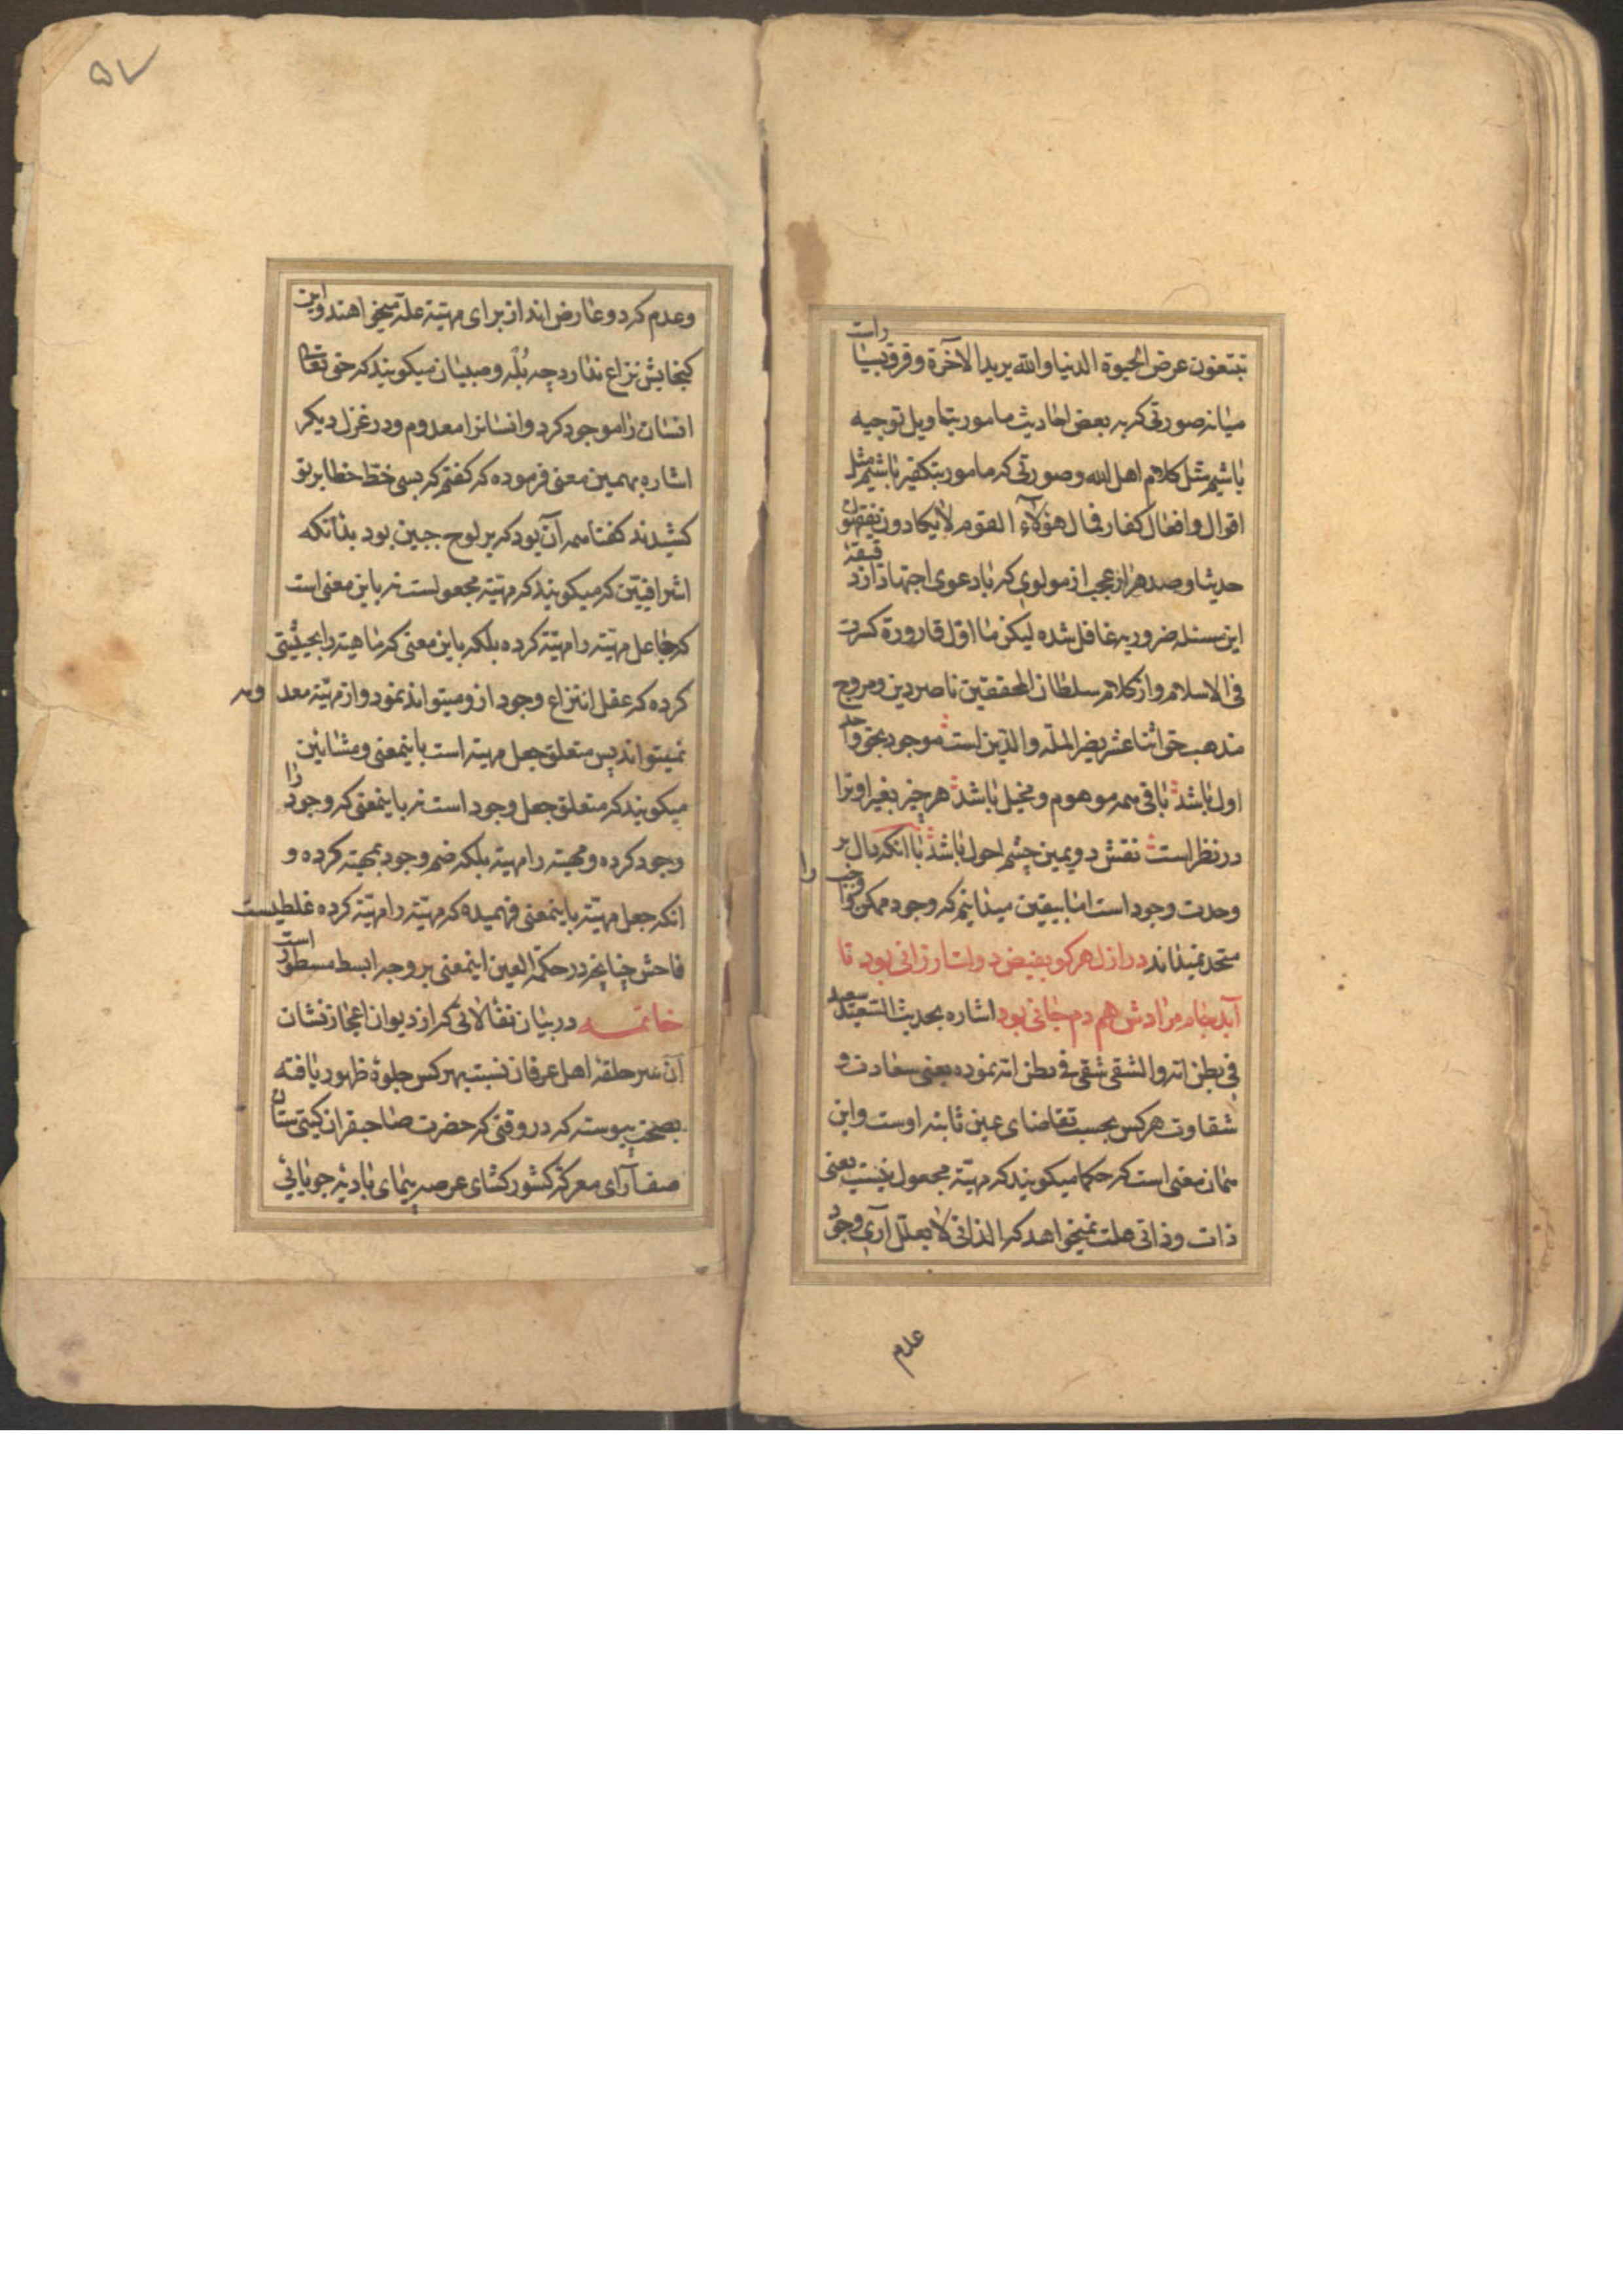 تبتغون عرض الحیوة الدنیا والله یرید الآخرة و فرق بسیار است
میانه صورتی که به بعض احادیث مامور بتاویل توجیه
باشیم مثل کلام اهل الله و صورتی که مامور بتکفیر باشیم مثل
اقوال و افعال کفار فمال هؤلآء القوم لا یکادون یفقهون
حدیثا و صد هزار عجب از مولوی که با دعوی اجتهاد از دقیقه
این مسئله ضروریه غافل شده لیکن ما اول قارورة کسرت
فی الاسلام و از کلام سلطان المحققین ناصر دین و مروج
مذهب حق اثنا عشر نصیر الملّه والدّین است موجود بحق واحد
اول باشد باقی همه موهوم و مخیل باشد هر چیز بغیر او ترا
در نظر است نقش دویمین چشم احول باشد با آنکه دال بر
وحدت وجود است اما بیقین میدانیم که وجود ممکن را واجب را
متحد نمیداند در ازل هر کو بفیض دولت ارزانی بود تا
آبد جام مرادش هم دم جانی بود اشاره بحدیث السّعید سعید
فی بطن امه والشقی شقی فی بطن امه نموده یعنی سعادت و
شقاوت هر کس بحسب تقاضای عین ثابته اوست و این
همان معنی است که حکما میکویند که مهیّة مجعول نیست یعنی
ذات و ذاتی علت نمیخواهد که الذاتی لا یعلل آری وجود
عدم
۵۷
و عدم کرد و عارض اند از برای مهیته علة میخواهند و این
کنجایش نزاع ندارد چه بُله و صبیان میکویند که حق تعالی
انسان را موجود کرد و انسانرا معدوم و در غزل دیکر
اشاره بهمین معنی فرموده که کفتم که بسی خط خطا بر تو
کشیدند کفتا همه آن بود که بر لوح جبین بود بدانکه
اشراقیّین که میکویند که مهیّة مجعولست نه باین معنی است
که جاعل مهیّته را مهیّة کرده بلکه باین معنی که ماهیته را بحیثیتی
کرده که عقل انتزاع وجود از و میتواند نمود و از مهیّة معدومه
نمیتواند پس متعلق جعل مهیته است باینمعنی و مشائین
میکویند که متعلق جعل وجود است نه باینمعنی که وجود را
وجود کرده و مهیته را مهیته بلکه ضم وجود بمهیته کرده و
انکه جعل مهیّته باینمعنی فهمیده که مهیّته را مهیّته کرده غلطیست
فاحش چنانچه در حکمة العین اینمعنی بر وجه ابسط مسطور است
خاتمه در بیان تفالاتی که از دیوان اعجاز نشان
آن سر حلقهٔ اهل عرفان نسبت بهر کس جلوهٔ ظهور یافته
بصحت پیوسته که در وقتی که حضرت صاحبقران کیتی ستان
صف آرای معرکهٔ کشور کشای عرصه پیمای بادیهٔ جویائی